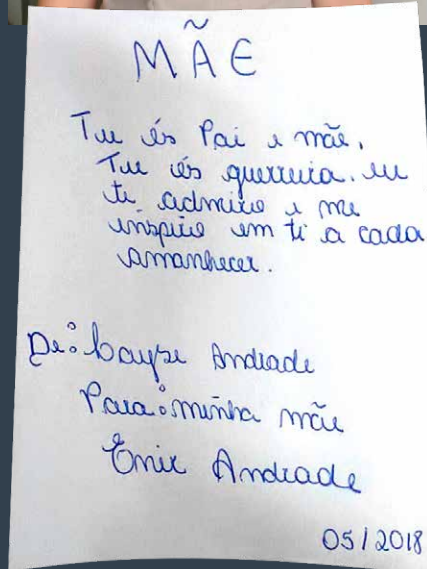 MÃE
Tu és Pai e mãe.
Tu és guerreira. eu
te admiro e me
inspiro em ti a cada
amanhecer.
De: Layze Andrade
Para: minha mãe
Enir Andrade
05/2018